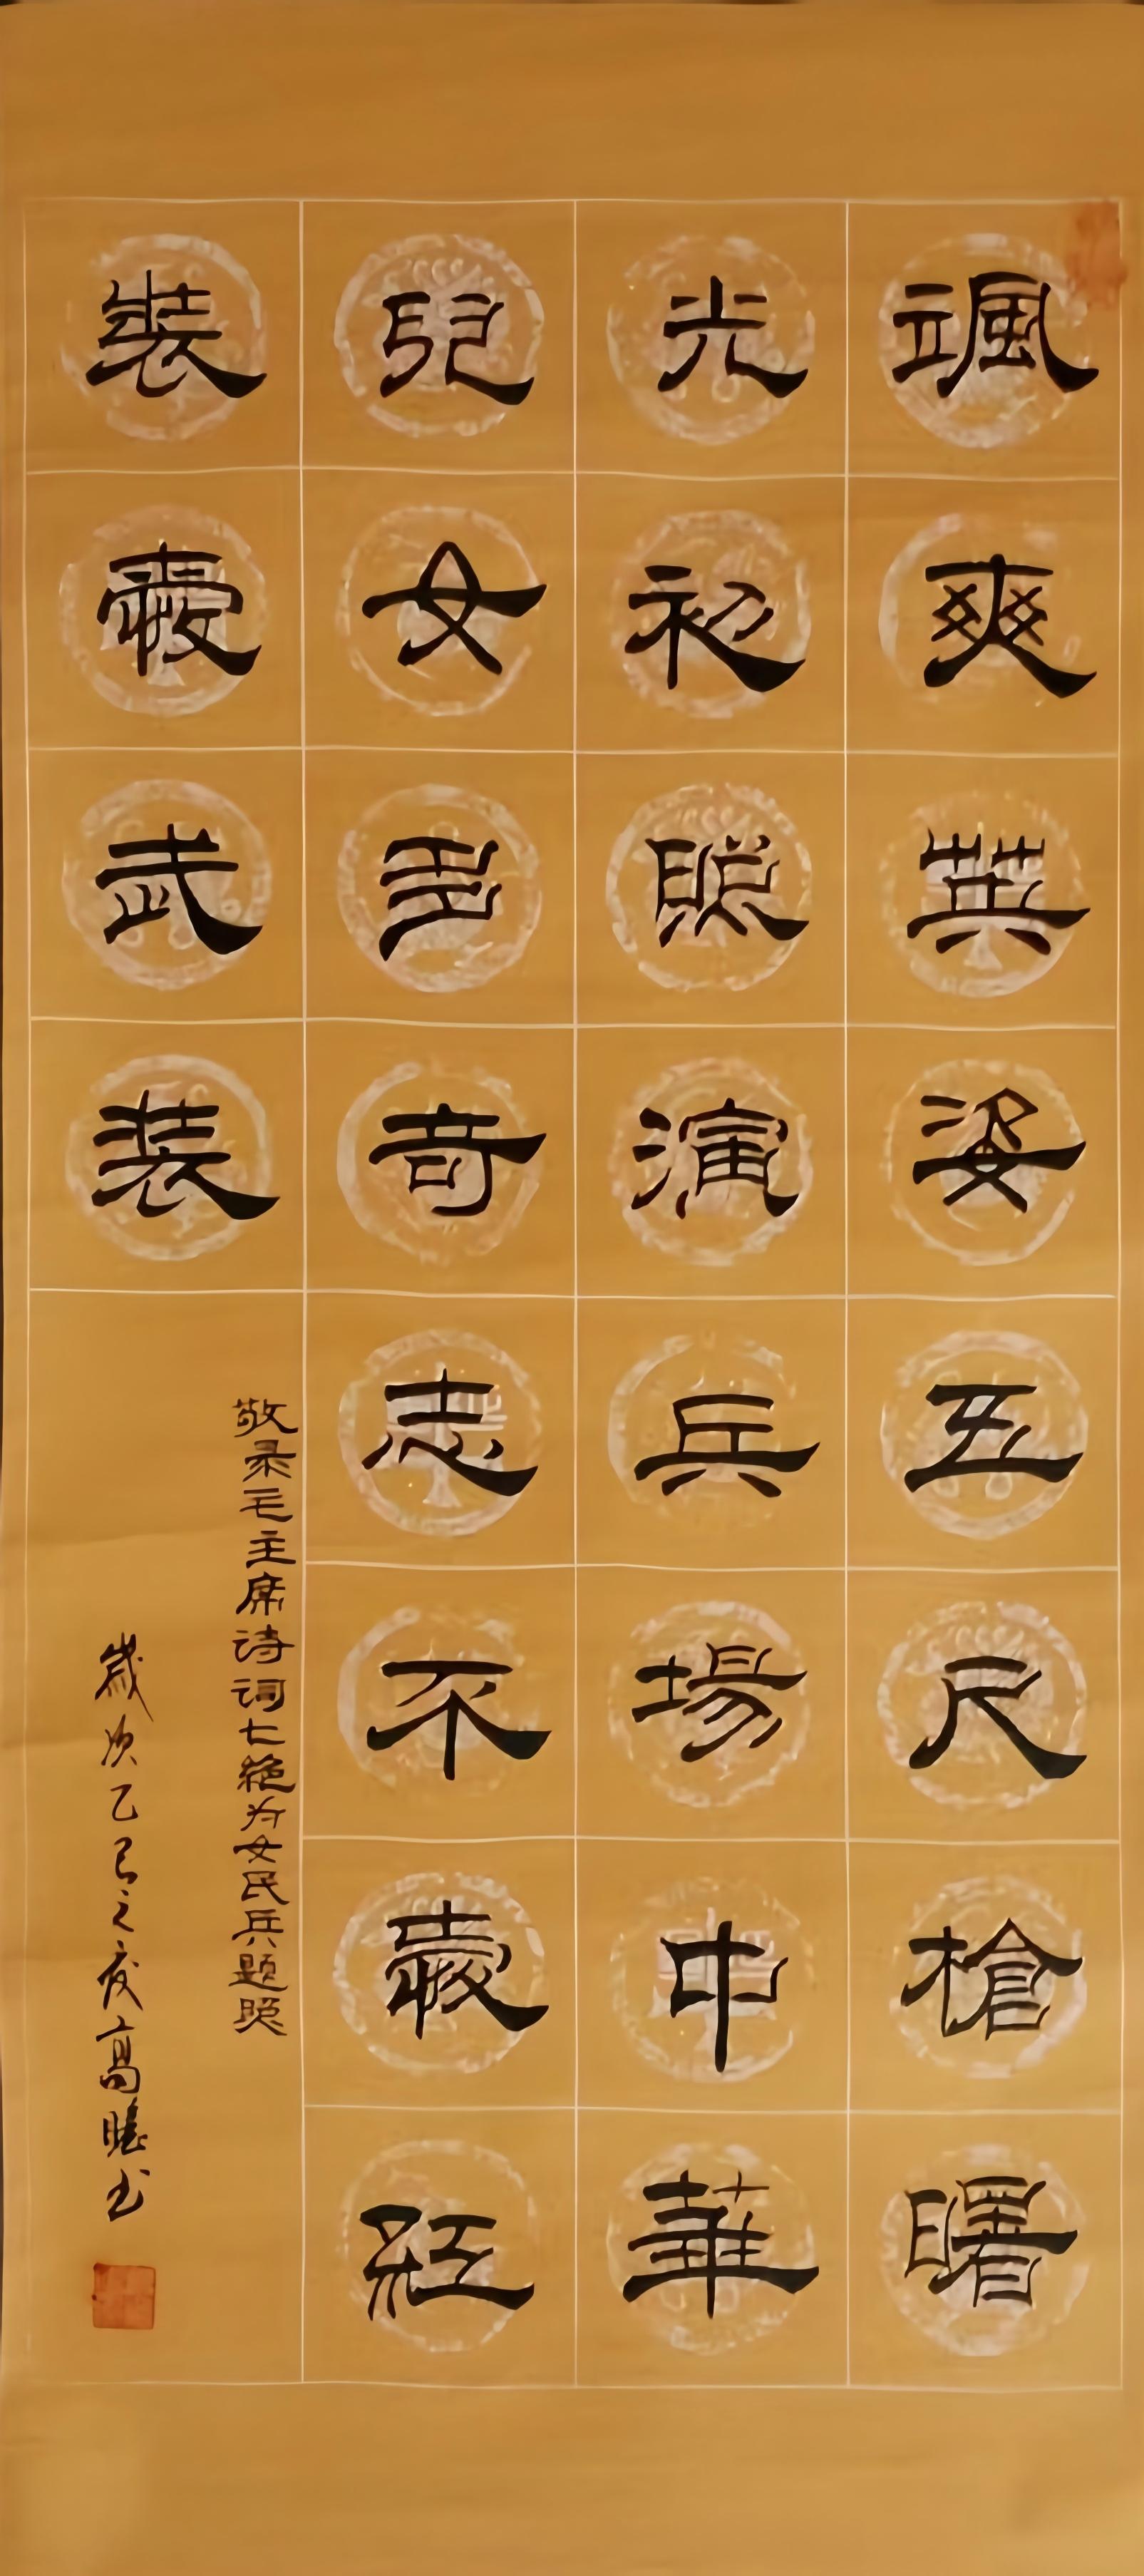 颯爽英姿五尺槍曙
光初照演兵場中華
兒女多奇志不愛紅
裝愛武装
敬录毛主席诗词七絕为女民兵题照
歲次乙巳之夏高书